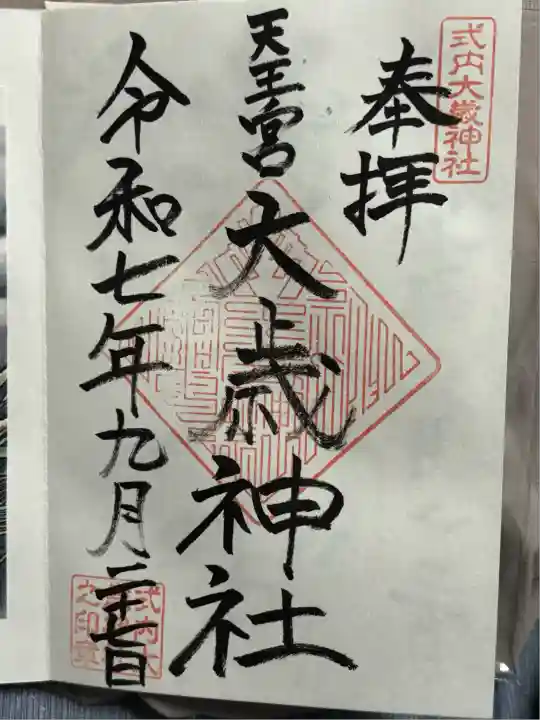 式内大歳神社
奉拝
天王宮
大歳神社
令和七年九月二十七日